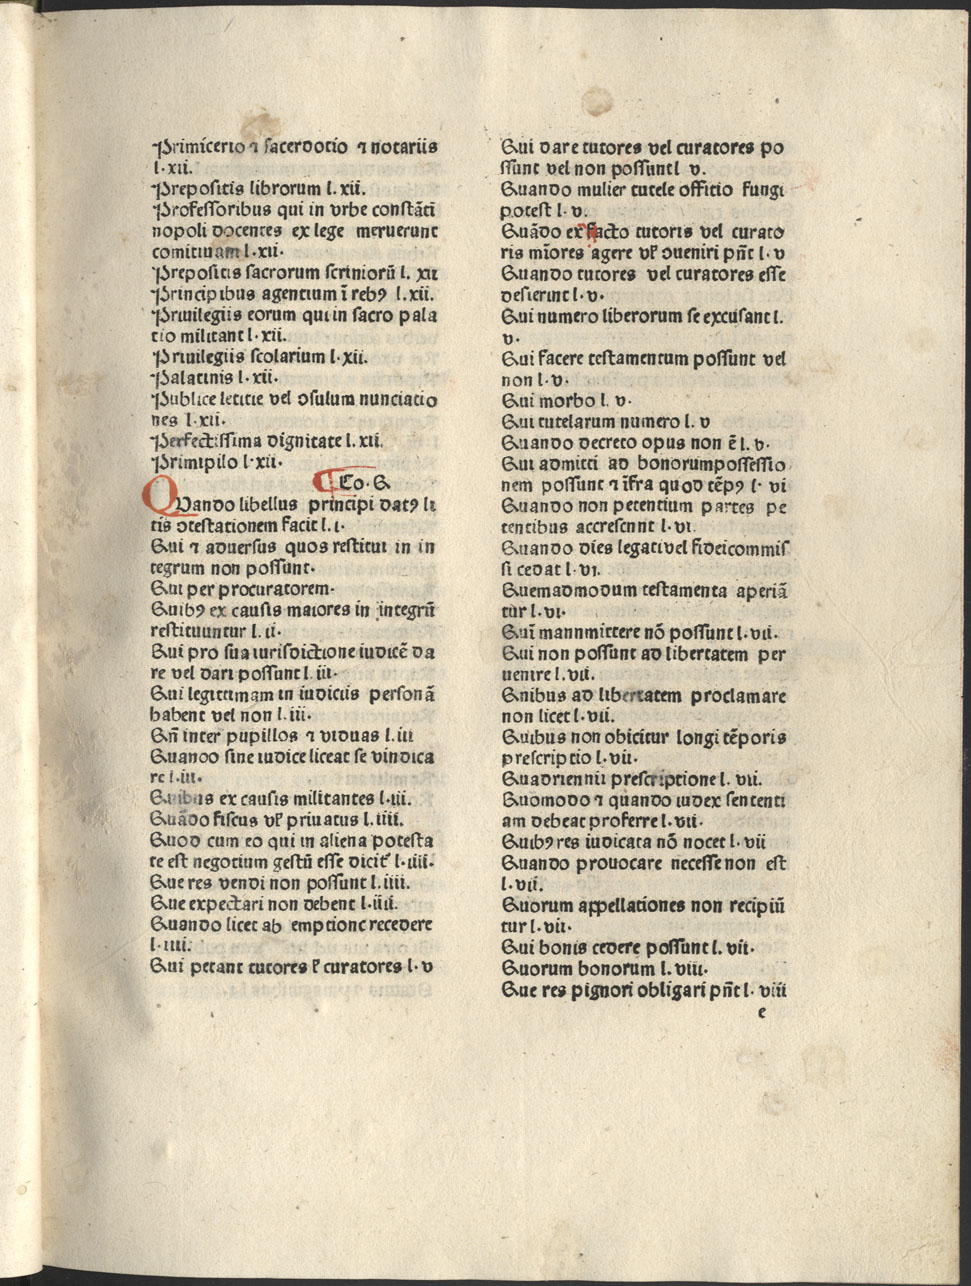 Primicerio ⁊ sacerdotio ⁊ notariis
l. xii.
Prepositis librorum l. xii.
Professoribus qui in vrbe constãti
nopoli docentes ex lege meruerunt
comitiuam l. xii.
Prepositis sacrorum scriniorũ l. xii
Principibus agentium ĩ rebꝯ l. xii.
Priuilegiis eorum qui in sacro pala
tio militant l. xii.
Priuilegiis scolarium l. xii.
Palatinis l. xii.
Publice letitie vel ↄsulum nunciatio
nes l. xii.
Perfectissima dignitate l. xii.
Primipilo l. xii.
Co. Q
QVando libellus principi datꝯ li
tis ↄtestationem facit l. i.
Qui ⁊ aduersus quos restitui in in
tegrum non possunt.
Qui per procuratorem.
Quibꝯ ex causis maiores in integrũ
restituuntur l. ii.
Qui pro sua iurisdictione iudicẽ da
re vel dari possunt l. iii.
Qui legittimam in iudiciis personã
habent vel non l. iii.
Qñ inter pupillos ⁊ viduas l. iii
Quando sine iudice liceat se vindica
re l. iii.
Quibus ex causis militantes l. iii.
Quãdo fiscus vꝉ priuatus l. iiii.
Quod cum eo qui in aliena potesta
te est negotium gestũ esse dicit᷑ l. iiii.
Que res vendi non possunt l. iiii.
Que expectari non debent l. iiii.
Quando licet ab emptione recedere
l. iiii.
Qui petant tutores ꝉ curatores l. v
Qui dare tutores vel curatores po
ssunt vel non possunt l v.
Quando mulier tutele officio fungi
potest l. v.
Quãdo ex facto tutoris vel curato
ris mĩores agere vꝉ ↄueniri pñt l. v
Quando tutores vel curatores esse
desierint l. v.
Qui numero liberorum se excusant l.
v.
Qui facere testamentum possunt vel
non l. v.
Qui morbo l. v.
Qui tutelarum numero l. v
Quando decreto opus non ẽ l. v.
Qui admitti ad bonorumpossessio
nem possunt ⁊ ĩfra quod tẽpꝯ l. vi
Quando non petentium partes pe
tentibus accrescnnt l. vi.
Quando dies legati vel fideicommis
si cedat l. vi.
Quemadmodum testamenta aperiã
tur l. vi.
Quĩ mannmittere nõ possunt l. vii.
Qui non possunt ad libertatem per
uenire l. vii.
Qnibus ad libertatem proclamare
non licet l. vii.
Quibus non obicitur longi tẽporis
prescriptio l. vii.
Quadriennii prescriptione l. vii.
Quomodo ⁊ quando iudex sententi
am debeat proferre l. vii.
Quibꝯ res iudicata nõ nocet l. vii
Quando prouocare necesse non est
l. vii.
Quorum appellationes non recipiũ
tur l. vii.
Qui bonis cedere possunt l. vii.
Quorum bonorum l. viii.
Que res pignori obligari pñt l. viii
e